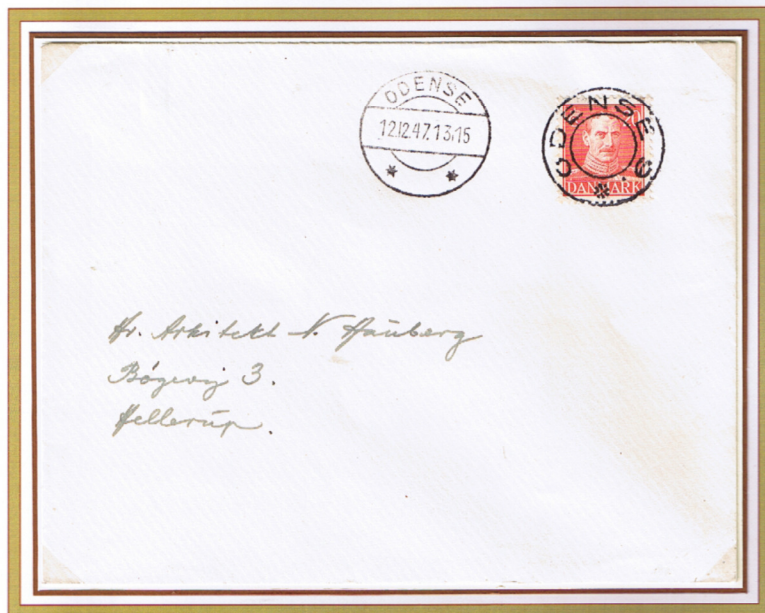 ODENSE
12.12.47.13.15
ODENSE 6.
DANMARK
Hr. Arkitekt N. Hauberg
Bøgevej 3.
Hellerup.